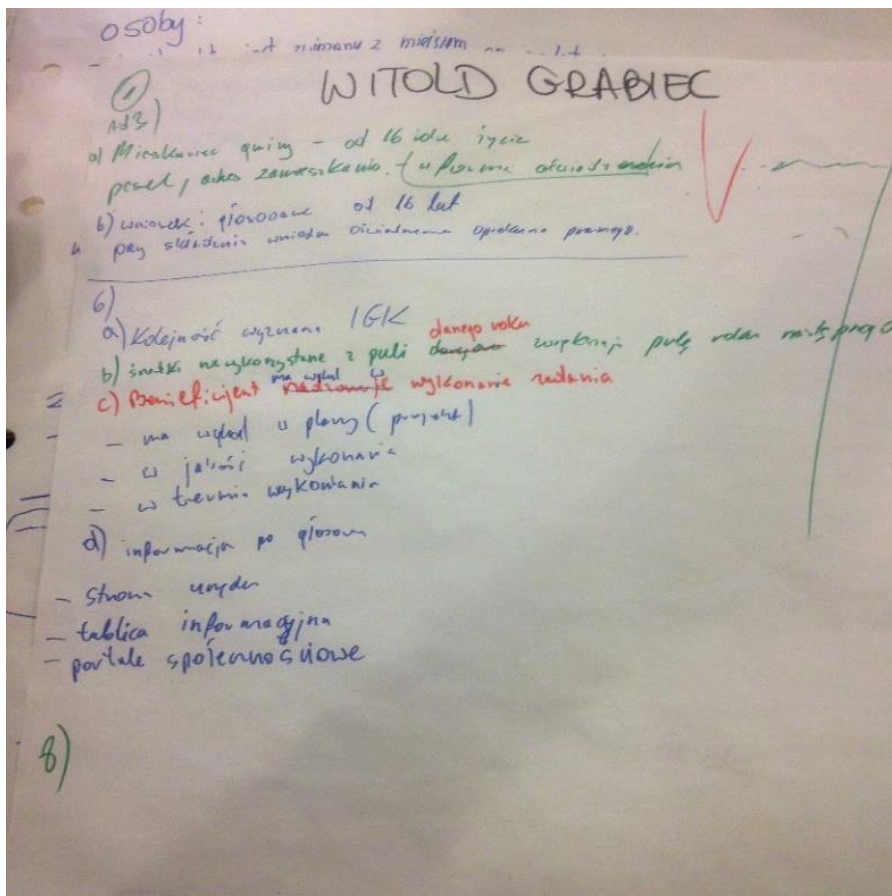 osoby:
z miejscem
WITOLD GRABIEC
1
Ad3)
a) Mieszkaniec gminy – od 16 roku życia
pesel, adres zamieszkania. + w formie oświadczenia
b) wniosek: głosowanie od 16 lat
przy składaniu wniosku oświadczenie opiekuna prawnego.
6)
a) Kolejność wyznana IGK
danego roku
b) środki niewykorzystane z puli zwiększają pulę roku następnego
ma wpływ w
c) Beneficjent nadzoruje wykonanie zadania
– ma wpływ w plany (projekt)
– w jakość wykonania
– w termin wykonania
d) informacja po głosow
– strona urzędu
– tablica informacyjna
– portale społecznościowe
8)